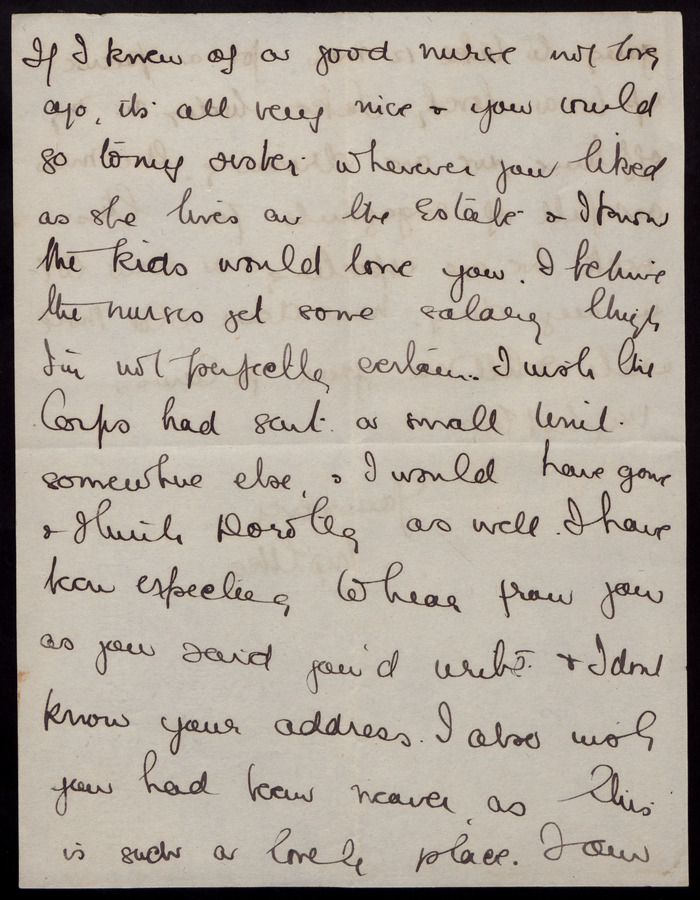 If I knew of a good nurse not long
ago, its all very nice & you could
go to my sister wherever you liked
as she lives on the Estate & I know
the kids would love you. I believe
the nurses get some salary though
I'm not perfectly certain. I wish the
Corps had sent a small Unit
somewhere else, & I would have gone
& I think Dorothy as well. I have
been expecting to hear from you
as you said you'd write & I dont
know your address. I also wish
you had been nearer as this
is such a lovely place. I am